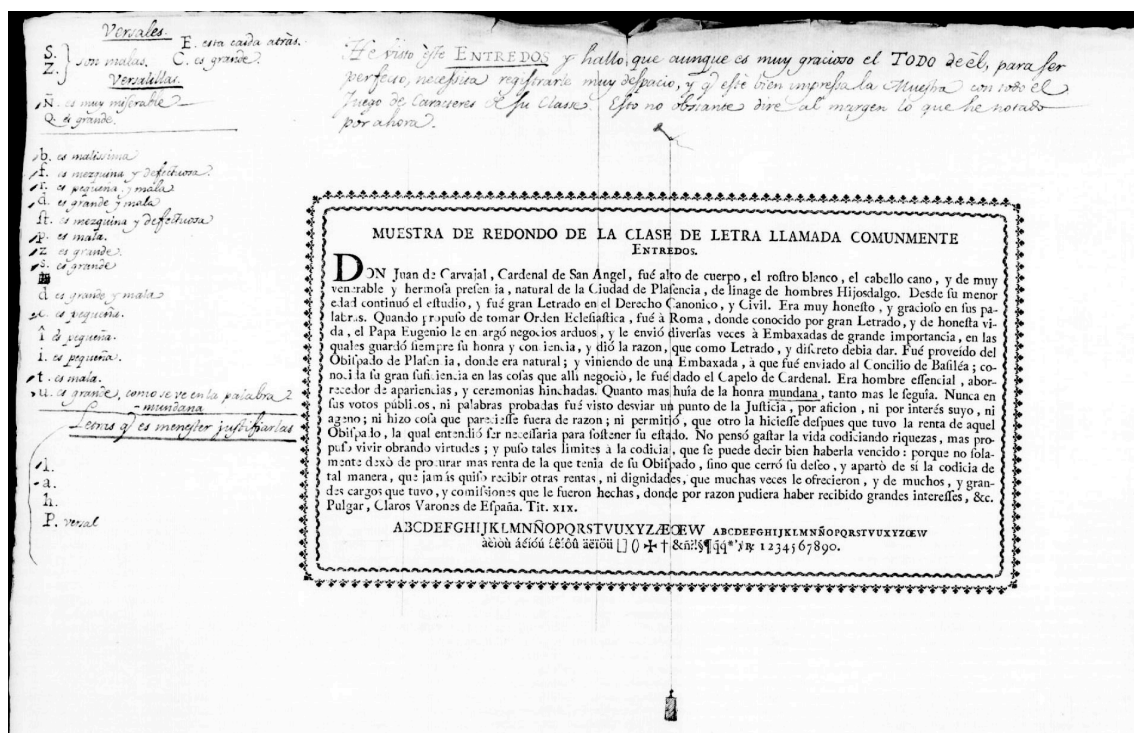 Versales.
S. Z. } son malas. E. esta caida atràs.
C. es grande.
Versalillas.
Ñ. es muy miserable
Q. es grande.
b. es malissima
f. es mezquina y defectuosa.
r. es pequeña y mala
a. es grande y mala
ſt. es mezquina y deffectuosa
p. es mala.
z es grande.
s. es grande
d es grande y mala
e. es pequeña.
î es pequeña.
i. es pequeña.
t. es mala.
u. es grande, como se ve en la palabra
mundana
Letras q̃ es menester justificarlas
l.
a.
h.
P. versal
He visto èste ENTREDOS y hallo, que aunque es muy gracioso el TODO de èl, para ser
perfecto, necessita registrarse muy despacio, y q̃ estè bien impressa la Muestra con todo el
Juego de Caracteres de su Clase. Esto no obstante dire al margen lo que he notado
por ahora.
MUESTRA DE REDONDO DE LA CLASE DE LETRA LLAMADA COMUNMENTE
ENTREDOS.
DON Juan de Carvajal, Cardenal de San Angel, fué alto de cuerpo, el roſtro blanco, el cabello cano, y de muy
venerable y hermoſa preſen ia, natural de la Ciudad de Plaſencia, de linage de hombres Hijosdalgo. Desde ſu menor
edad continuó el eſtudio, y fué gran Letrado en el Derecho Canonico, y Civil. Era muy honeſto, y gracioſo en ſus pa-
labras. Quando propuſo de tomar Orden Ecleſiaſtica, fué à Roma, donde conocido por gran Letrado, y de honeſta vi-
da, el Papa Eugenio le en argó negocios arduos, y le envió diverſas veces à Embaxadas de grande importancia, en las
quales guardó ſiempre ſu honra y con iencia, y dió la razon, que como Letrado, y diſcreto debia dar. Fué proveído del
Obiſpado de Plaſen ia, donde era natural; y viniendo de una Embaxada, à que fué enviado al Concilio de Baſiléa; co-
nocida ſu gran ſuficiencia en las coſas que alli negoció, le fué dado el Capelo de Cardenal. Era hombre eſſencial, abor-
recedor de apariencias, y ceremonias hinchadas. Quanto mas huía de la honra mundana, tanto mas le ſeguía. Nunca en
ſus votos públicos, ni palabras probadas fué visto desviar un punto de la Juſticia, por aficion, ni por interés suyo, ni
ageno; ni hizo coſa que parecieſſe fuera de razon; ni permitió, que otro la hicieſſe deſpues que tuvo la renta de aquel
Obiſpado, la qual entendió ſer neceſſaria para ſoſtener ſu eſtado. No pensó gaſtar la vida codiciando riquezas, mas pro-
puſo vivir obrando virtudes; y puſo tales limites à la codicia, que ſe puede decir bien haberla vencido: porque no ſola-
mente dexò de procurar mas renta de la que tenia de ſu Obiſpado, ſino que cerró ſu deſeo, y apartò de sí la codicia de
tal manera, que jamás quiſo recibir otras rentas, ni dignidades, que muchas veces le ofrecieron, y de muchos, y gran-
des cargos que tuvo, y comiſſiones que le fueron hechas, donde por razon pudiera haber recibido grandes intereſſes, &c.
Pulgar, Claros Varones de Eſpaña. Tit. XIX.
ABCDEFGHIJKLMNÑOPQRSTVUXYZÆŒW ABCDEFGHIJKLMNÑOPQRSTVUXYZŒW
àèìòù áéíóú âêîôû äëïöü [] () ✠ † &ñ?!§¶q̃q́*')℞: 1234567890.